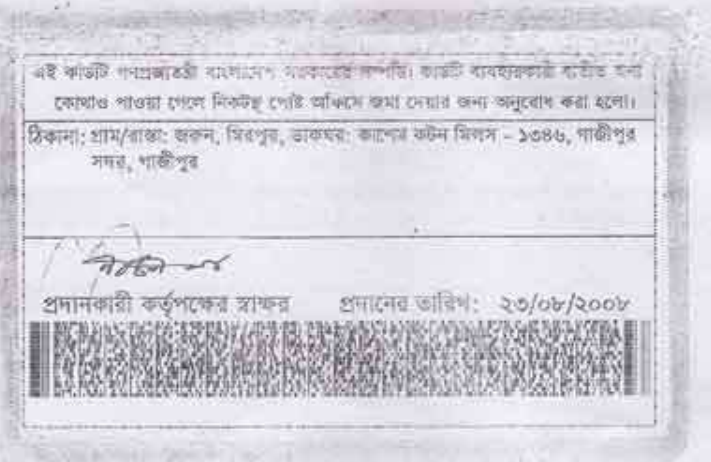 এই কার্ডটি গণপ্রজাতন্ত্রী বাংলাদেশ সরকারের সম্পত্তি। কার্ডটি ব্যবহারকারী ব্যতীত অন্য
কোথাও পাওয়া গেলে নিকটস্থ পোষ্ট অফিসে জমা দেয়ার জন্য অনুরোধ করা হলো।
ঠিকানা: গ্রাম/রাস্তা: জরুন, মিরপুর, ডাকঘর: কাশেম কটন মিলস - ১৩৪৬, গাজীপুর
সদর, গাজীপুর
প্রদানকারী কর্তৃপক্ষের স্বাক্ষর প্রদানের তারিখ: ২৩/০৮/২০০৮